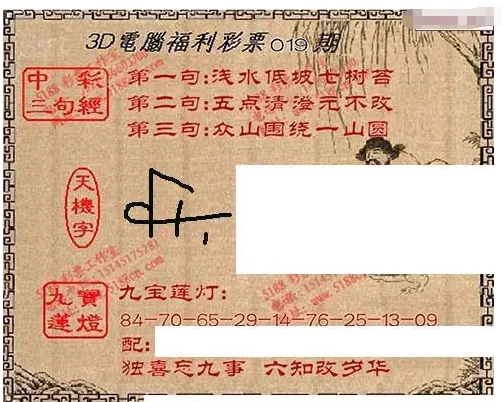 3D電腦福利彩票019期
中彩
三句經
第一句:浅水低坡七树苔
第二句:五点清澄元不改
第三句:众山围绕一山圆
天機字
九寶
蓮燈
九宝莲灯:
84-70-65-29-14-76-25-13-09
配:
独喜忘九事 六知改岁华